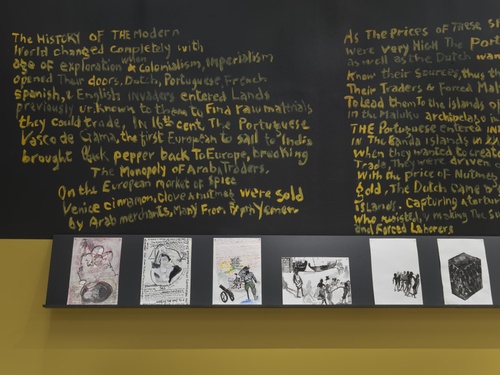 The HISTORY OF THE Modern
World changed completely with
age of exploration when & colonialism, imperialism
opened Their doors, Dutch, Portuguese French
Spanish, & English invaders entered Lands
previously unknown to them to find raw materials
they could trade, In 16th cent. The Portuguese
Vasco de Gama, the first European to sail to India
brought back pepper back To Europe, breaking
The Monopoly of Arab Traders.
On the European market of spice
Venice cinnamon, Clove & nutmeg were sold
by Arab merchants, Many From Yemen
As The Prices of These
were very High The Port
as well as The Dutch wan
know their sources, thus
Their Traders & Forced
To lead Them to the Islands
in the Maluku archipelago
THE Portuguese entered
In The Banda Islands in
when they wanted to create
Trade, They were driven
with the price of Nutmeg
gold, The Dutch Came
Islands. Capturing &
who resisted, making The
and Forced Laborers